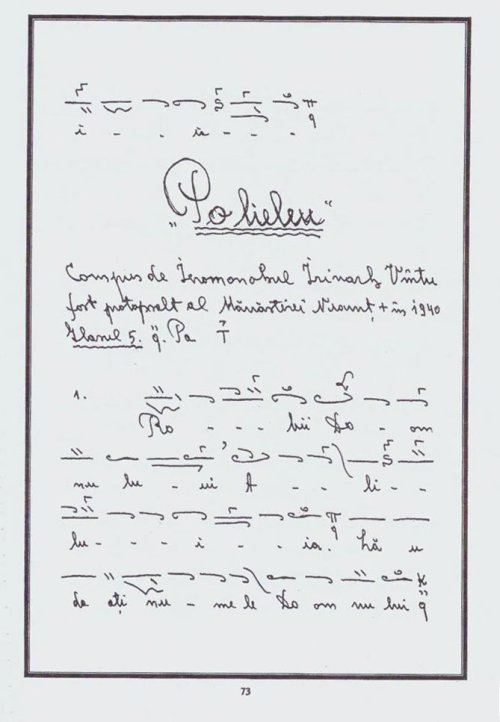 i - - - ia - - -
„Polieleu“
Compus de Ieromonahul Irinarh Vîntu
fost protopsalt al Mănăstirei Neamț + în 1940
Glasul 5. q̈. Pa
1.
Ro - - - bii Do - om
nu lu - ui A - - - li - -
lu - - - - i - - - ia. Lă u
da ați nu - me le Do om nu lui
73